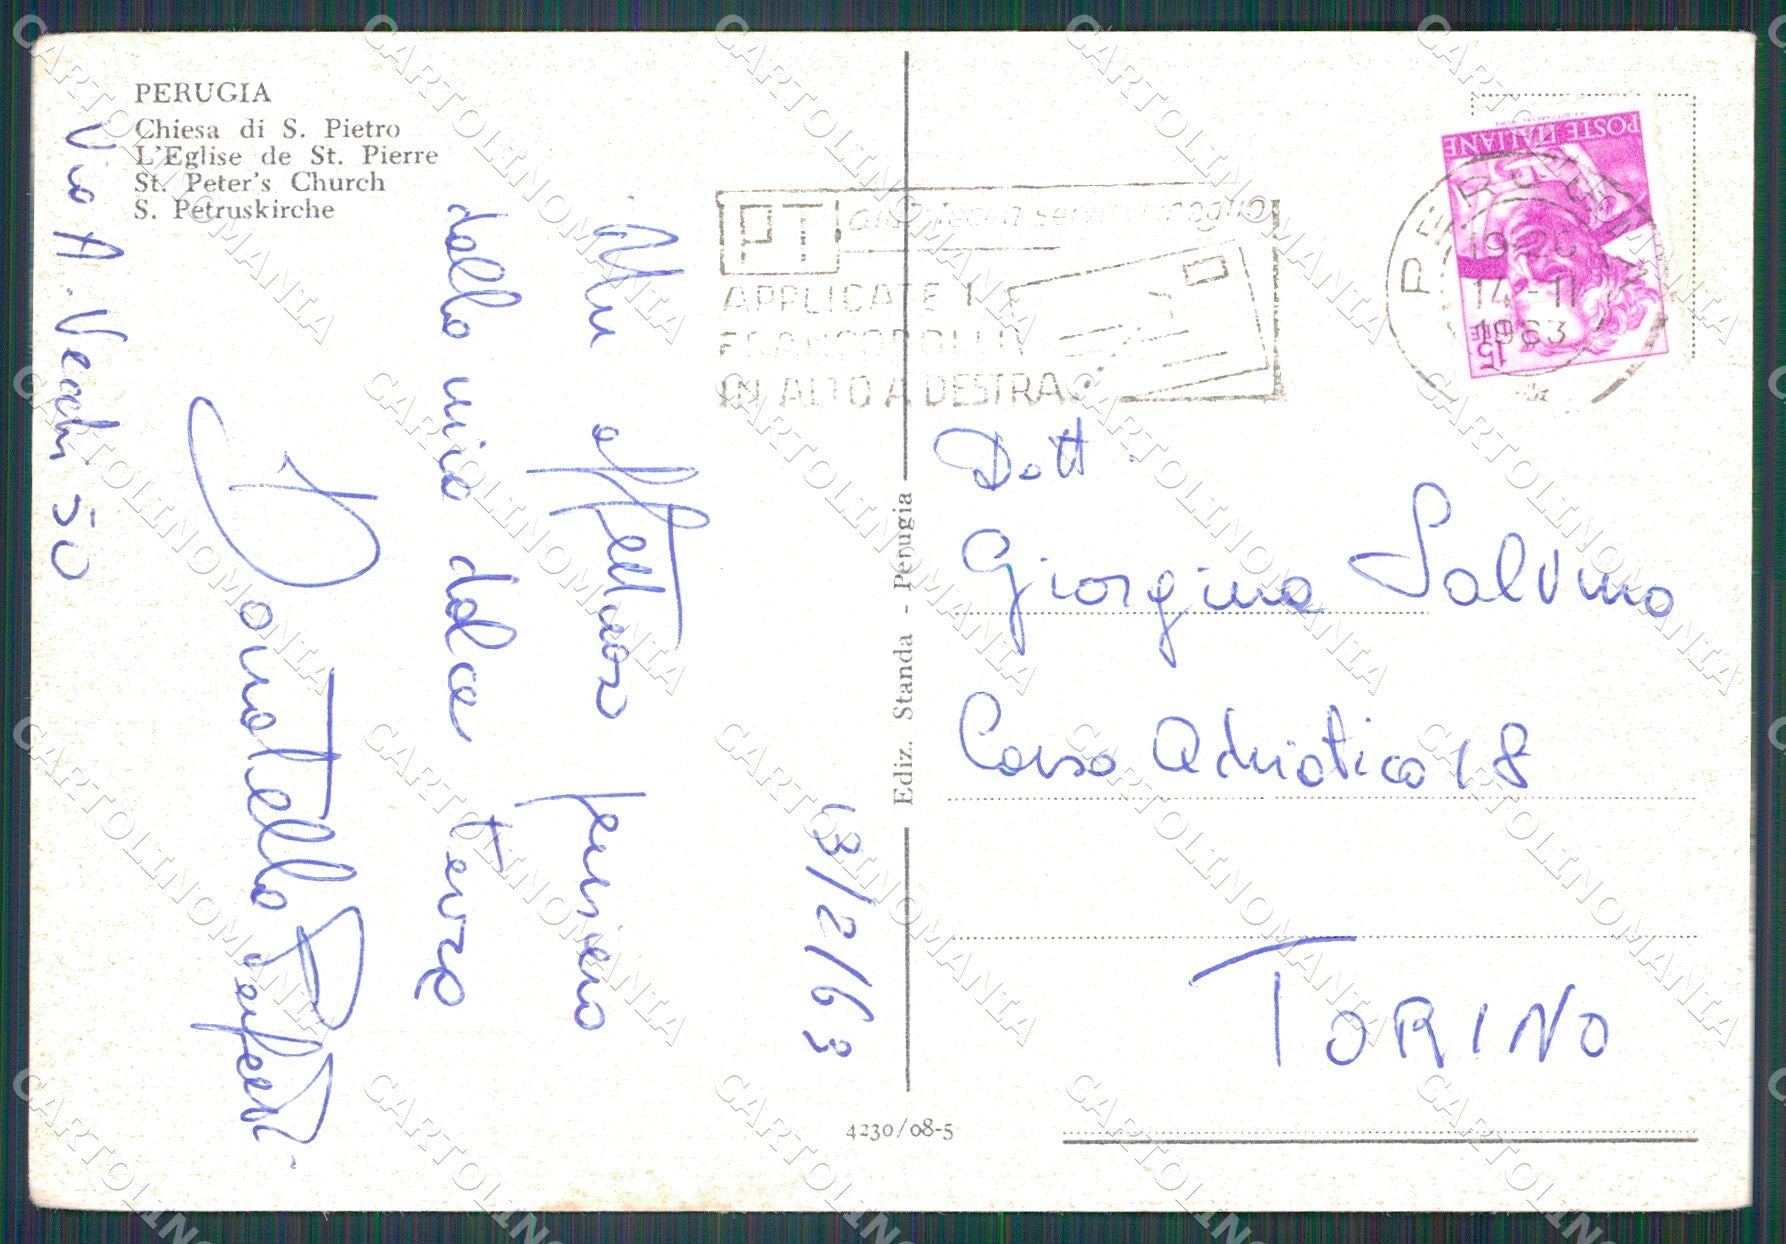 PERUGIA
Chiesa di S. Pietro
L'Eglise de St. Pierre
St. Peter's Church
S. Petruskirche
13/2/63
Un affettuoso pensiero
dalla mia dolce terra
Donatella Perfetti
Via A. Vecchi 50
Ediz. Standa - Perugia
4230/08-5
PT
APPLICATE I
FRANCOBOLLI
IN ALTO A DESTRA
POSTE ITALIANE
15
PERUGIA
19-20
14-11
1963
Dott.
Giorgina Salvino
Corso Adriatico 18
TORINO
CARTOLINOMANIA